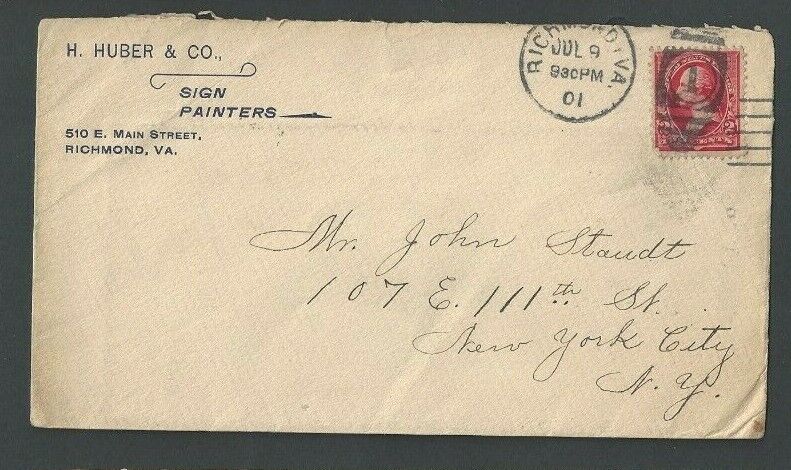 H. HUBER & CO.,
SIGN
PAINTERS
510 E. MAIN STREET,
RICHMOND, VA.
RICHMOND, VA.
JUL 9
930PM
01
Mr. John Staudt
107 E. 111th St.
New York City
N. Y.